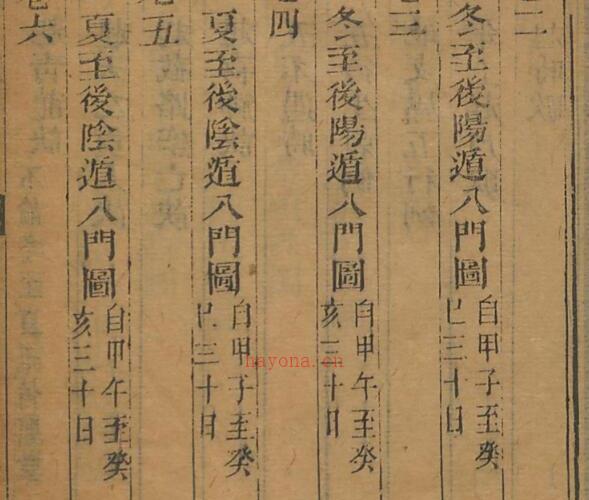 二
冬至後陽遁八門圖 自甲子至癸巳三十日
三
冬至後陽遁八門圖 自甲午至癸亥三十日
四
夏至後陰遁八門圖 自甲子至癸巳三十日
五
夏至後陰遁八門圖 自甲午至癸亥三十日
六
hayona.cn